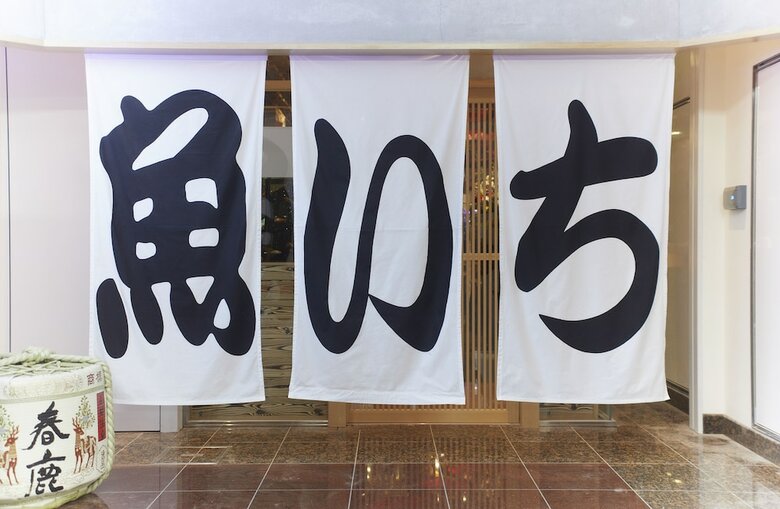 魚いち
春鹿